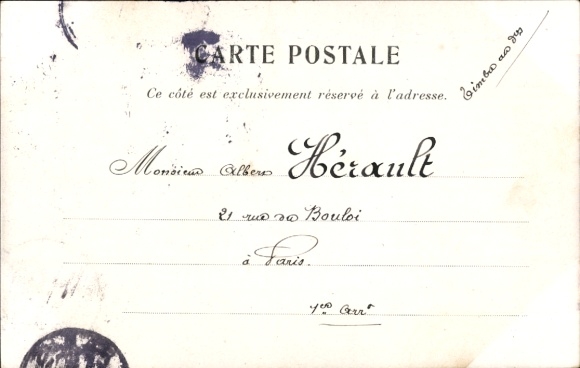 CARTE POSTALE
Timbre au dos
Ce côté est exclusivement réservé à l'adresse.
Monsieur Albert Hérault
21 rue du Bouloi
à Paris.
1er Arrt